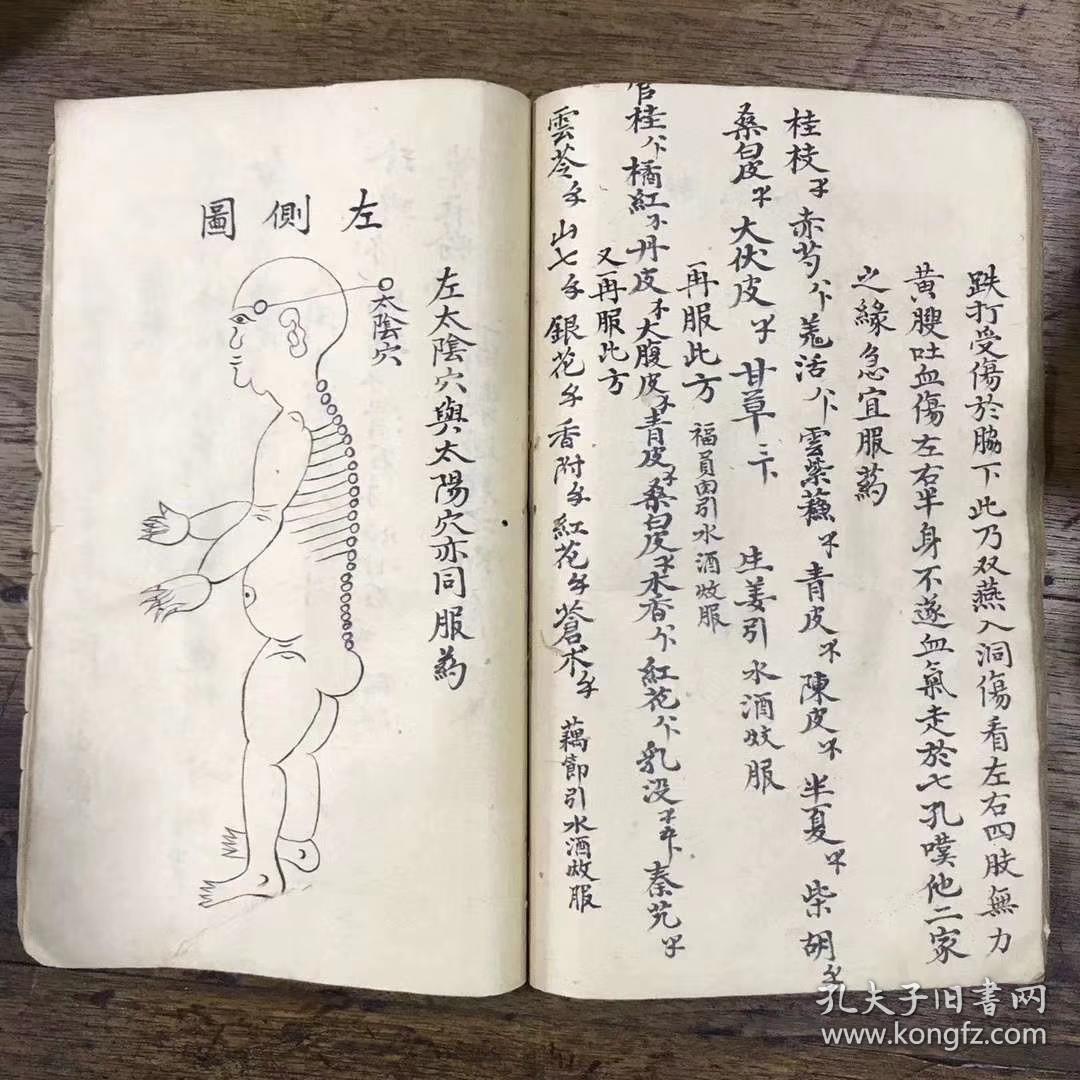 跌打受傷於脇下此乃双燕入洞傷看左右四肢無力
黃腫吐血傷左右半身不遂血氣走於七孔嘆他二家
之緣急宜服葯
桂枝 赤芍 羗活 雲紫蘓 青皮 陳皮 半夏 柴胡
桑白皮 大伏皮 甘草 生姜引水酒 服
一再服此方 福員肉引水酒 服
官桂 橘紅 丹皮 大腹皮 青皮 桑白皮 木香 紅花 乳没 秦艽
又一再服此方
雲苓 山七 銀花 香附 紅花 蒼术 藕節引水酒 服
左側圖
太陰穴
左太陰穴與太陽穴亦同服葯
孔夫子旧书网
www.kongfz.com